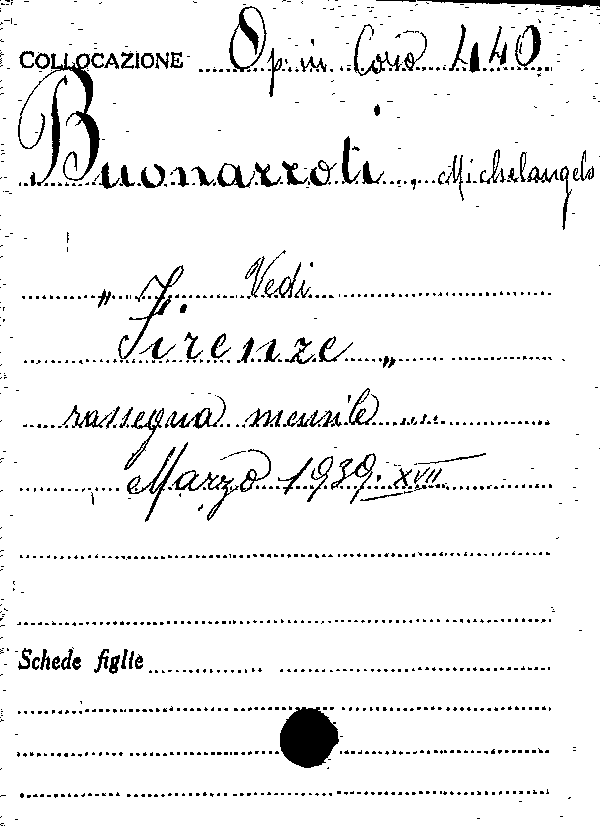 COLLOCAZIONE Op. in Corso 440
Buonarroti, Michelangelo
Vedi
" Firenze "
rassegna mensile ....
Marzo 1939. XVII
Schede figlie